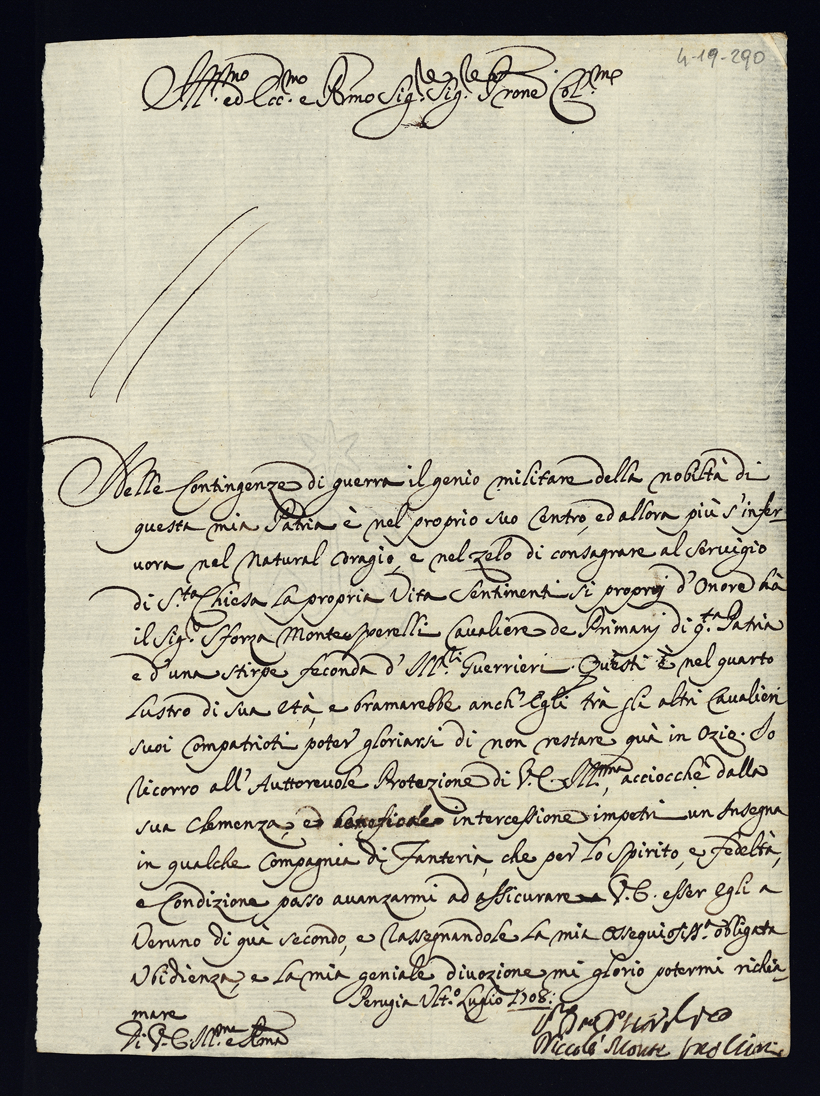 4-19-290
Ill.mo ed Ecc.mo e Rmo Sig.re Sig.re e Prone Col.mo
Nelle Contingenze di guerra il genio militare della nobiltà di
questa mia Patria è nel proprio suo Centro, ed allora più s'infer-
vora nel natural coragio, e nel zelo di consagrare al Servigio
di S.ta Chiesa la propria Vita Sentimenti si proprij d'Onore hà
il Sig.r Sforza Montesperelli Cavaliere de Primarij di q.ta Patria
e d'una stirpe feconda d'Ill.ri Guerrieri. Questi è nel quarto
Lustro di sua età, e bramarebbe anch'Egli trà gli altri Cavalieri
suoi Compatrioti poter gloriarsi di non restare quà in Ozio. Io
ricorro all'Auttorevole Protezione di V.E. Ill.ma, acciocchè dalla
sua Clemenza, ed intercessione impetri un Insegna
in qualche Compagnia di Fanteria, che per lo Spirito, e Fedeltà,
e Condizione posso avanzarmi ad assicurare V.E. esser Egli a
Veruno di quà secondo, e rassegnandole la mia ossequiosiss.a obligata
Vbidienza, e la mia geniale divozione mi glorio potermi richia-
mare
Perugia Vlt.o Luglio 1708:
Di V.E. Ill.ma e Rma
Niccolò Monte